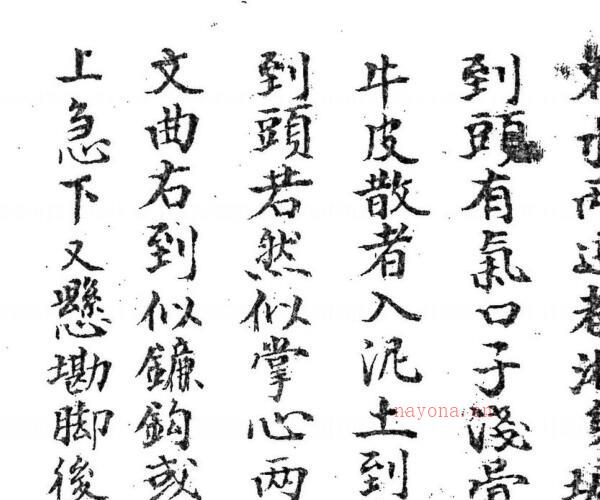 到頭有氣口子淺骨
牛皮散者入泥土到
到頭若然似掌心兩
文曲右到似鐮鈎或
上急下又懸墈脚後
nayona.cn